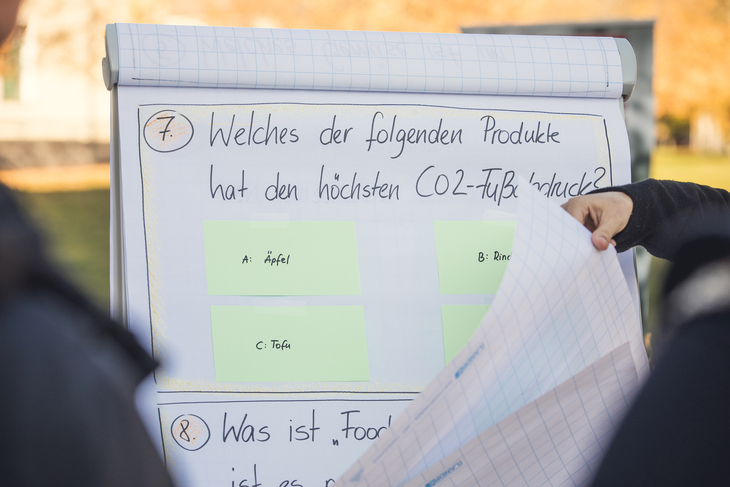 7. Welches der folgenden Produkte
hat den höchsten CO2-Fußabdruck?
A: Äpfel
B:
C: Tofu
8. Was ist
ist es